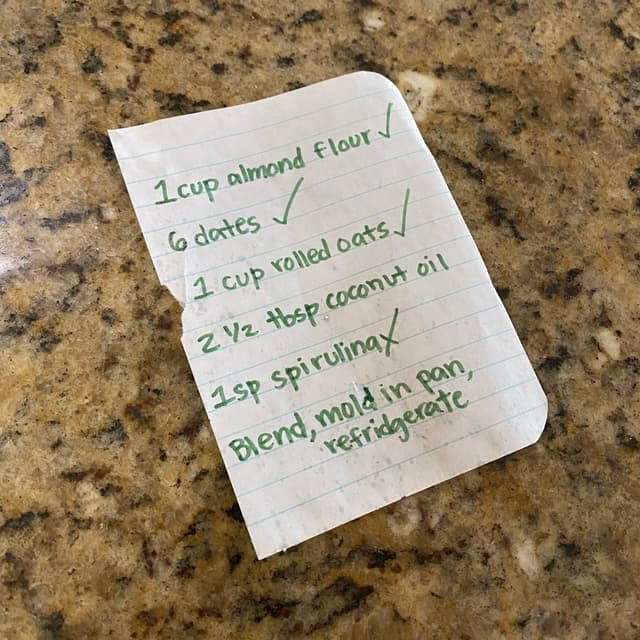 1 cup almond flour ✓
6 dates ✓
1 cup rolled oats ✓
2 1/2 tbsp coconut oil
1sp spirulina ✓
Blend, mold in pan,
refridgerate